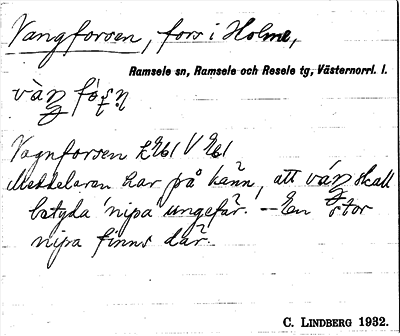 Vangforsen, fors i Holme,
Ramsele sn, Ramsele och Resele tg, Västernorrl. l.
Vagnforsen
Meddelaren har på känn, att ván skall
betyda 'nipa' ungefär. – En stor
nipa finns där.
C. LINDBERG 1932.